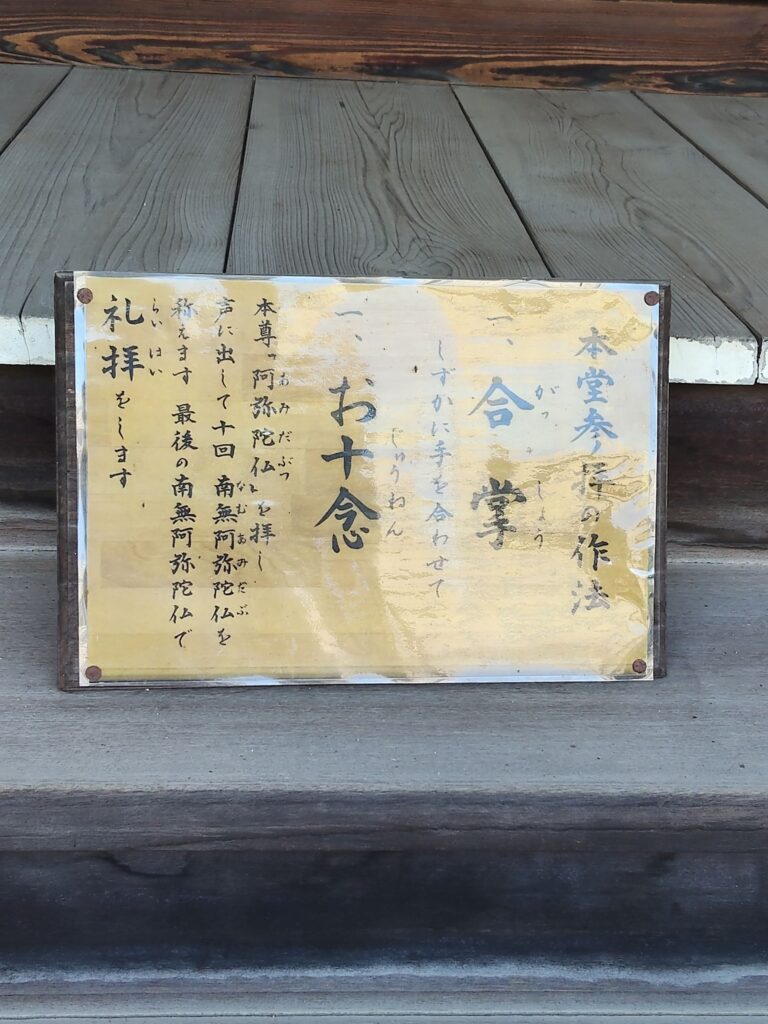 本堂参拝の作法
一、合掌
がっしょう
しずかに手を合わせて
一、お十念
じゅうねん
本尊「阿弥陀仏」を拝し
あみだぶつ
声に出して十回 南無阿弥陀仏を
なむあみだぶ
称えます 最後の南無阿弥陀仏で
礼拝をします
らいはい